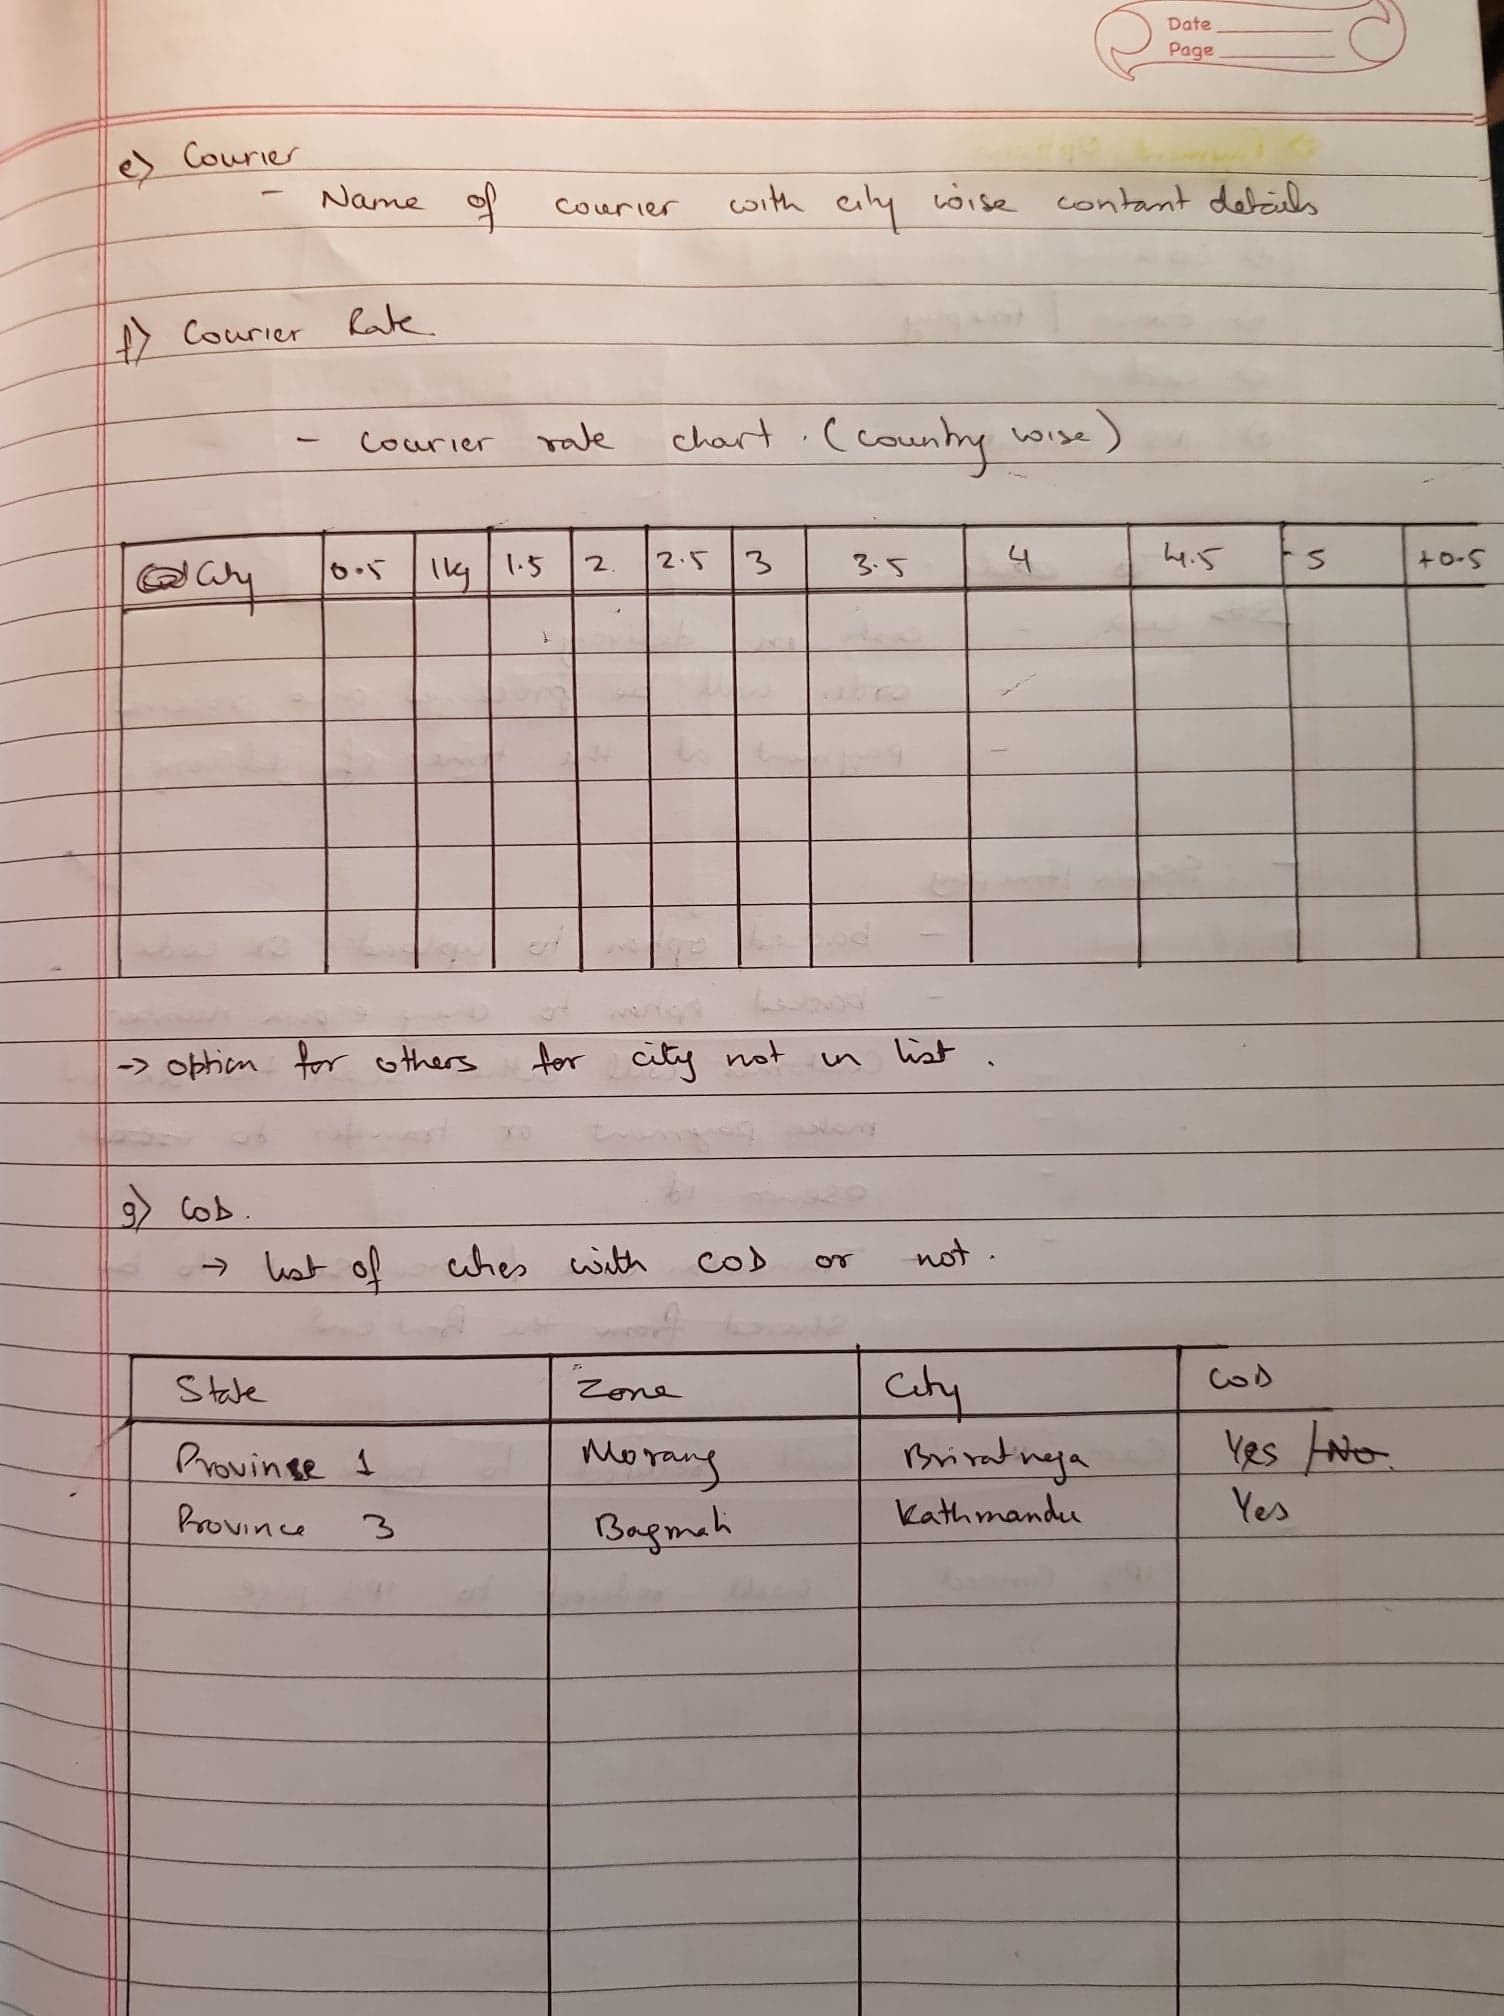 Date
Page
e) Courier
- Name of courier with city wise contant details
f) Courier Rate
- Courier rate chart. (country wise)
City 0.5 1kg 1.5 2. 2.5 3 3.5 4 4.5 5 +0.5
-> option for others for city not in list.
g) COD.
-> list of cities with COD or not.
State Zone City COD
Province 1 Morang Briratnega Yes /No.
Province 3 Bagmati Kathmandu Yes